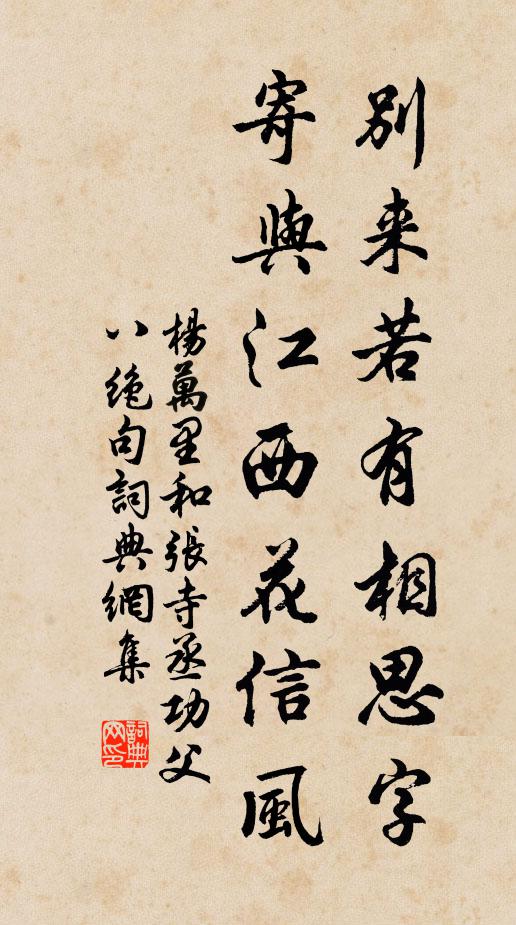 別来若有相思字
寄與江西花信風
楊萬里和張寺丞功父
八絶句詞典網集
詞典
网印